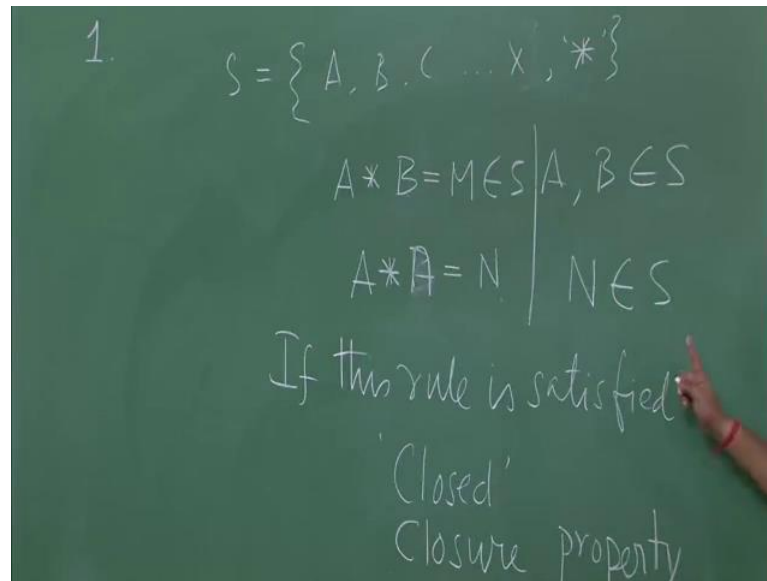 1.
S = { A, B, C ... X, '*' }
A * B = M ∈ S | A, B ∈ S
A * A = N | N ∈ S
If this rule is satisfied
'Closed'
Closure property